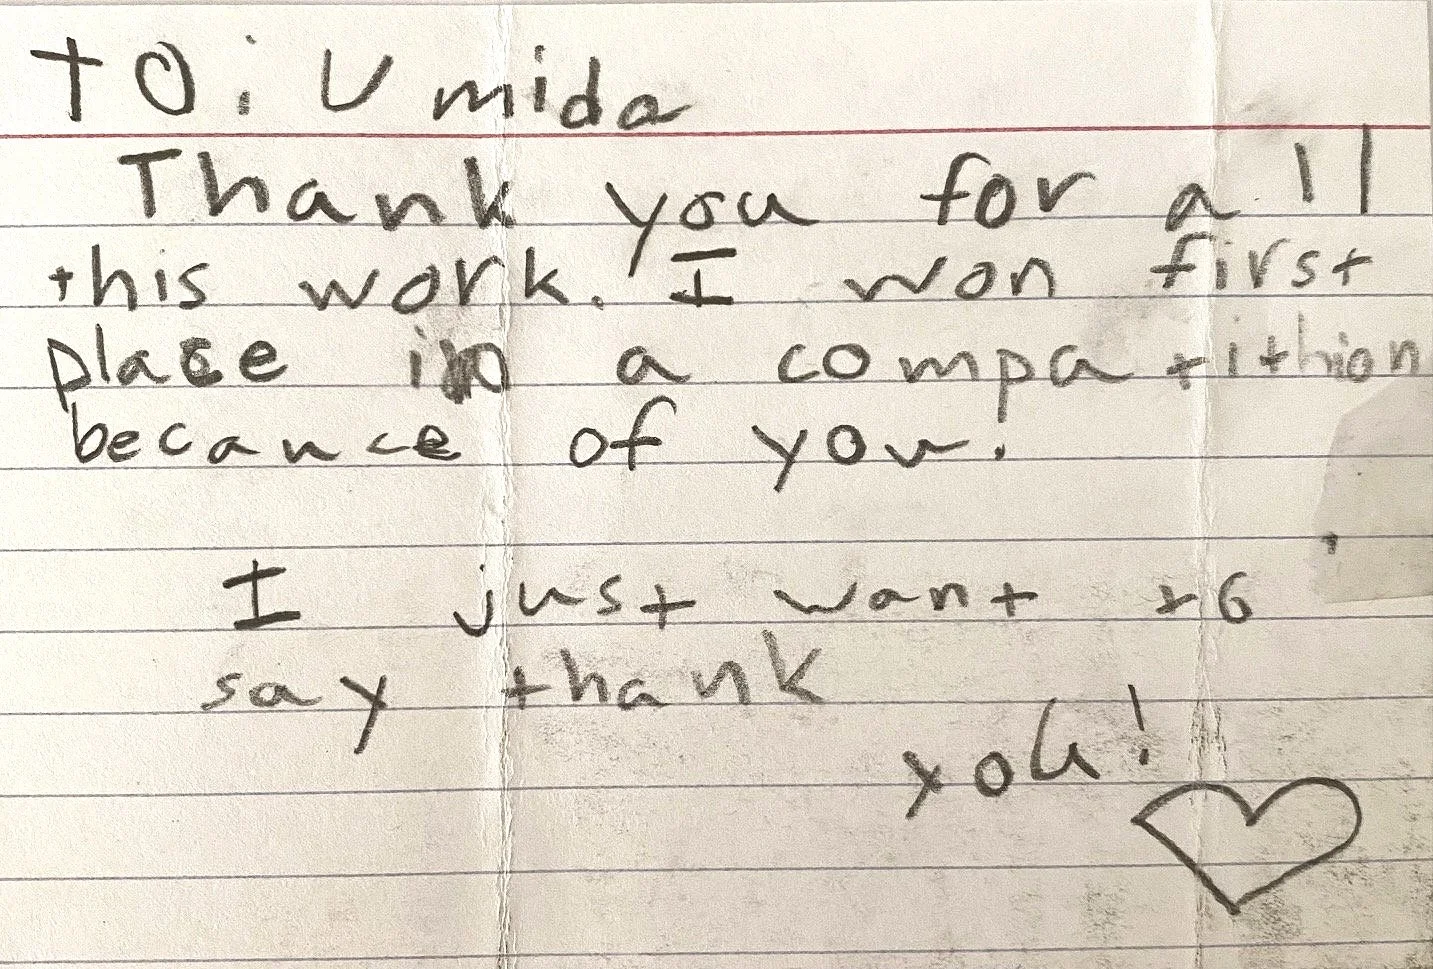 To: Umida
Thank you for all
this work. I won first
place in a compatithion
becauce of you.
I just want to
say thank
you!